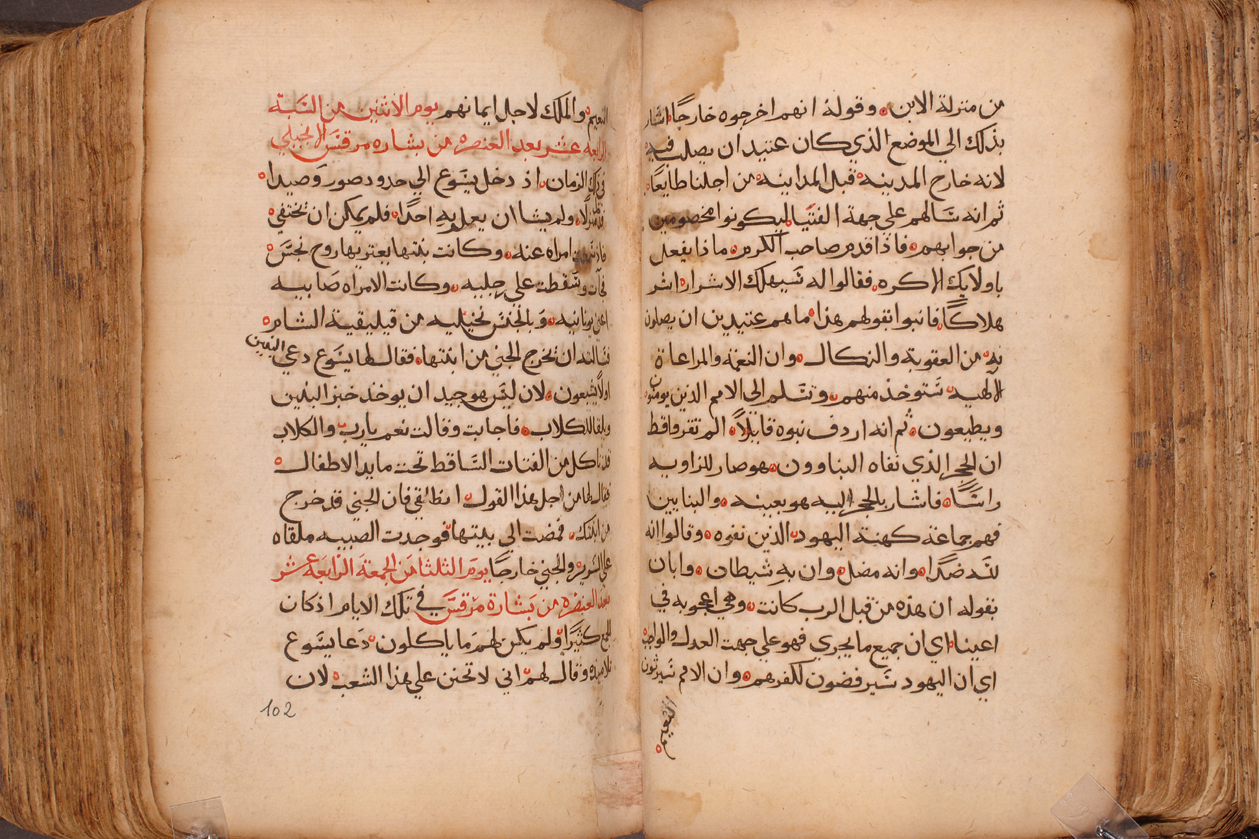 من منزلة الابن وقوله انهم اخرجوه خارجًا اشار
بذلك الي الموضع الذي كان عتيد ان يصلب فيه
لانه خارج المدينه قبل المدابنه من اجلنا طايعًا
ثم انه سالهم علي جهة الفتيا ليكونوا مخصومين
من جوابهم فاذا قدم صاحب الكرم ماذا يفعل
باولايك الاكره فقالوا له سيهلك الاشرار اشر
هلاكًا فانبوا بقولهم هذا ما هم عتيدين ان يصلون
به من العقوبة والنكال وان النعمه والمراعاة
الالهيه ستوخذ منهم وتسلم الي الامم الذين يومنون
ويطيعون ثم انه اردف نبوه قايلاً الم تقروا قط
ان الحجر الذي نفاه البناوون هو صار للزاويه
راسًا فاشار بالحجر اليه هو بعينه والبنايين
فهم جماعة كهنة اليهود الذين نفوه وقالوا انه
لله ضدًا وانه مضل وان به شيطان وابان
بقوله ان هذه من قبل الرب كانت وهي اعجوبه في
اعيننا اي ان جميع ما يجري فهو علي جهت العدل والواجب
اي ان اليهود سيرفضون لكفرهم وان الامم سيرثون
النعيم
النعيم والملك لاجل ايمانهم يوم الاثنين من السبة
الرابعه عشر بعد العنصره من بشاره مرقس الانجيلي
في ذلك الزمان اذ دخل يسوع الي حدود صور وصيدا
منزلًا ولم يشا ان يعلم به احدًا فلم يمكن ان يختفي
امراه عنه وكانت بنتها يعتريها روح نجس
فجآت وسقطت علي رجليه وكانت الامراه صابيه
اعني يونانيه وبالجنس نخيليه من فيليقية الشام
فسالته ان يخرج الجني من ابنتها فقال لها يسوع دعي البنين
اولاً يشبعون لان ليس هو جيد ان يوخذ خبز البنين
ويلقا للكلاب فاجابت وقالت نعم يا رب والكلاب
تاكل من الفتات الساقط تحت مايد الاطفال
فقال لها من اجل هذا القول انطلقي فان الجني قد خرج
من ابنتك فمضت الي بيتها فوجدت الصبيه ملقاه
علي السرير والجني خارجًا يوم الثلثا من الجمعة الرابعة عشر
بعد العنصره من بشارة مرقس في تلك الايام اذ كان
الجمع كثيرًا ولم يكن لهم ما ياكلون دعا يسوع
تلاميذه وقال لهم اني لاتحنن علي هذا الشعب لان
102